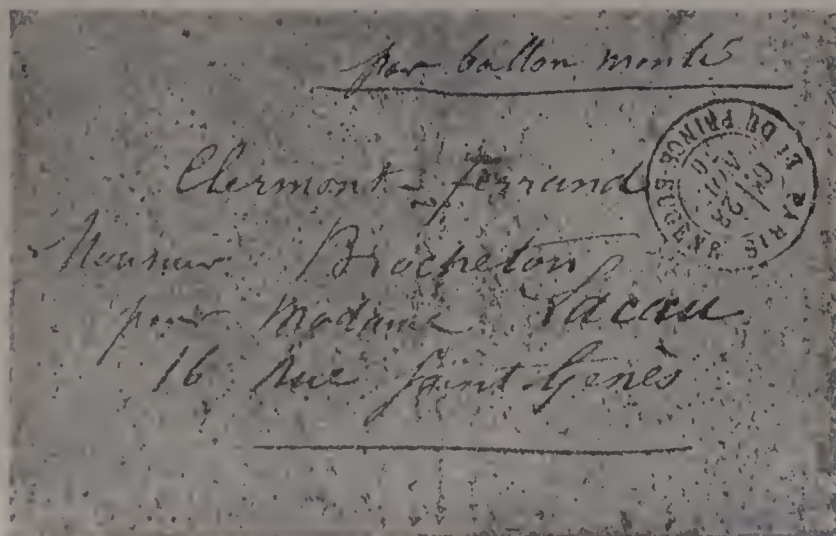 par ballon monté
Clermont-ferrand
Monsieur Brocheton
pour Madame Lacau
16 Rue Saint-Genès
PARIS
Bt DU PRINCE EUGENE
28